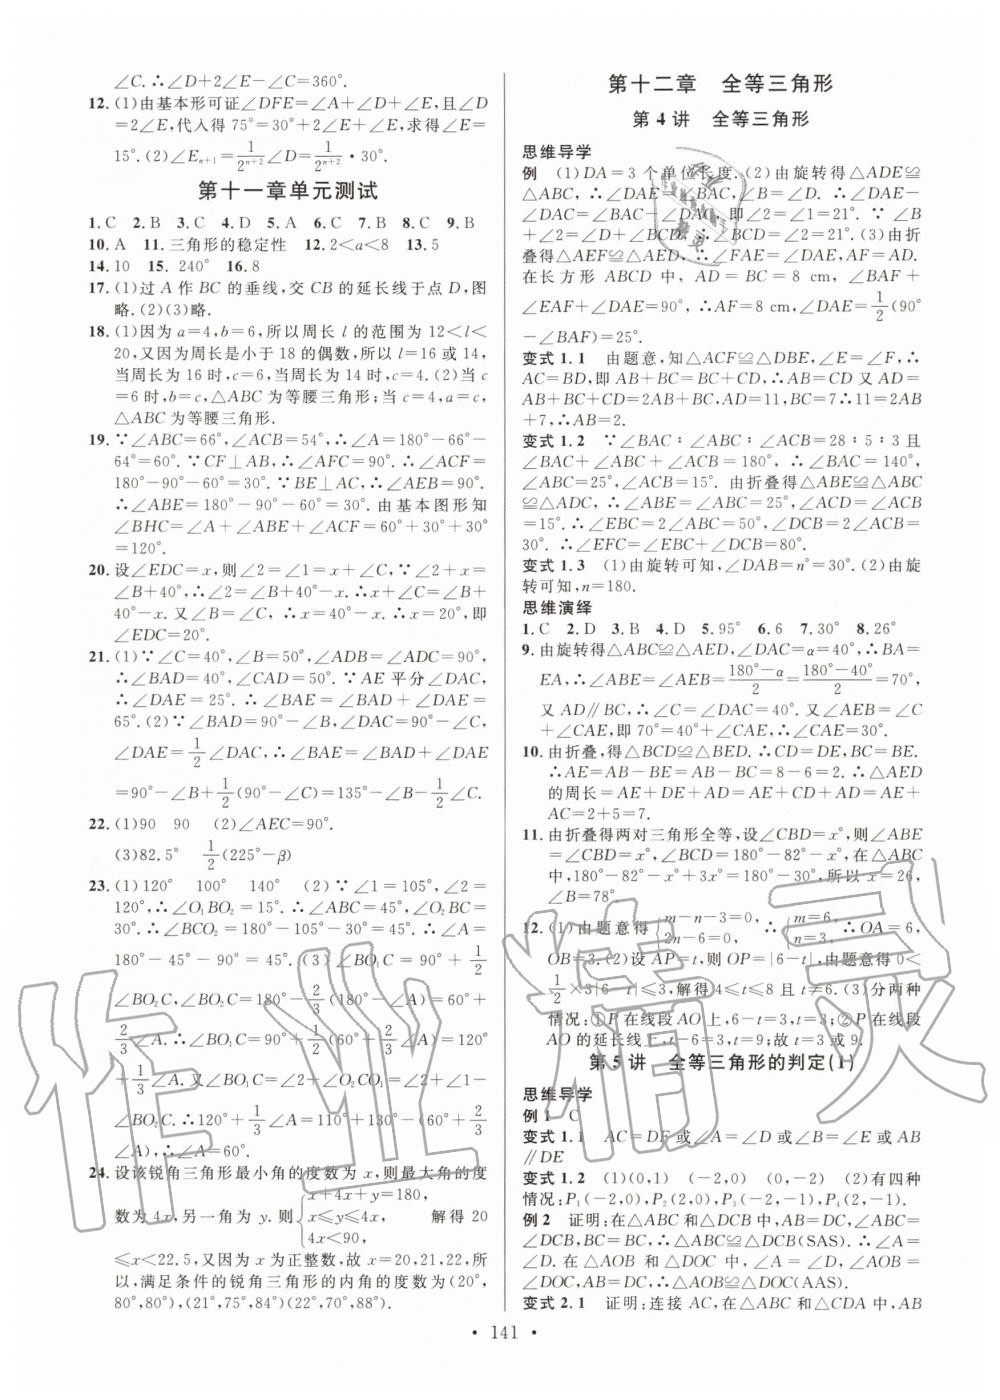 ∠C.∴∠D+2∠E-∠C=360°.
12.(1)由基本形可证∠DFE=∠A+∠D+∠E,且∠D
=2∠E,代入得75°=30°+2∠E+∠E,求得∠E=
15°.(2)∠Eₙ₊₁=1/2ⁿ⁺²∠D=1/2ⁿ⁺²·30°.
第十一章单元测试
1.C 2.B 3.C 4.D 5.A 6.C 7.B 8.C 9.B
10.A 11.三角形的稳定性 12.2<a<8 13.5
14.10 15.240° 16.8
17.(1)过A作BC的垂线,交CB的延长线于点D,图
略.(2)(3)略.
18.(1)因为a=4,b=6,所以周长l的范围为12<l<
20,又因为周长是小于18的偶数,所以l=16或14,
当周长为16时,c=6,当周长为14时,c=4.(2)当c
=6时,b=c,△ABC为等腰三角形;当c=4,a=c,
△ABC为等腰三角形.
19.∵∠ABC=66°,∠ACB=54°,∴∠A=180°-66°-
64°=60°.∵CF⊥AB,∴∠AFC=90°.∴∠ACF=
180°-90°-60°=30°.∵BE⊥AC,∴∠AEB=90°.
∴∠ABE=180°-90°-60°=30°.由基本图形知
∠BHC=∠A+∠ABE+∠ACF=60°+30°+30°
=120°.
20.设∠EDC=x,则∠2=∠1=x+∠C,∵∠2+x=
∠B+40°,∴∠2=∠B+40°-x.∴x+∠C=∠B+
40°-x.又∠B=∠C,∴x=40°-x.∴x=20°,即
∠EDC=20°.
21.(1)∵∠C=40°,∠B=50°,∠ADB=∠ADC=90°,
∴∠BAD=40°,∠CAD=50°.∵AE平分∠DAC,
∴∠DAE=25°.∴∠BAE=∠BAD+∠DAE=
65°.(2)∵∠BAD=90°-∠B,∠DAC=90°-∠C,
∠DAE=1/2∠DAC,∴∠BAE=∠BAD+∠DAE
=90°-∠B+1/2(90°-∠C)=135°-∠B-1/2∠C.
22.(1)90 90 (2)∠AEC=90°.
(3)82.5° 1/2(225°-β)
23.(1)120° 100° 140° (2)∵∠1=105°,∠2=
120°,∴∠O₁BO₂=15°.∴∠ABC=45°,∠O₂BC=
30°.∴∠BCO₂=180°-105°-30°=45°.∴∠A=
180°-45°-90°=45°.(3)∠BO₁C=90°+1/2
∠A,∠BO₂C=180°-2/3(180°-∠A)=60°+
2/3∠A.∴∠BO₂C=180°-1/3(180°-∠A)=120°
+1/3∠A.又∠BO₁C=∠BO₂C+∠BO₁C-
∠BO₂C.∴120°+1/3∠A=110°+130°-(60°+2/3
∠A),∴∠A=60°.
24.设该锐角三角形最小角的度数为x,则最大角的度
数为4x,另一角为y.则{x+4x+y=180, x≤y≤4x, 4x<90, 解得20
≤x<22.5,又因为x为正整数,故x=20,21,22,所
以,满足条件的锐角三角形的内角的度数为(20°,
80°,80°),(21°,75°,84°)(22°,70°,88°).
第十二章 全等三角形
第4讲 全等三角形
思维导学
例 (1)DA=3个单位长度.(2)由旋转得△ADE≌
△ABC,∴∠DAE=∠BAC,∠B=∠D.∴∠DAE-
∠DAC=∠BAC-∠DAC,即∠2=∠1=21°.∵∠B
+∠2=∠D+∠BCD,∴∠BCD=∠2=21°.(3)由折
叠得△AEF≌△AED,∴∠FAE=∠DAE,AF=AD.
在长方形ABCD中,AD=BC=8 cm,∠BAF+
∠EAF+∠DAE=90°,∴AF=8 cm,∠DAE=1/2(90°
-∠BAF)=25°.
变式1.1 由题意,知△ACF≌△DBE,∠E=∠F,∴
AC=BD,即AB+BC=BC+CD,∴AB=CD又AD=
AB+BC+CD=2AB+BC,AD=11,BC=7∴11=2AB
+7,∴AB=2.
变式1.2 ∵∠BAC∶∠ABC∶∠ACB=28∶5∶3且
∠BAC+∠ABC+∠ACB=180°,∴∠BAC=140°,
∠ABC=25°,∠ACB=15°.由折叠得△ABE≌△ABC
≌△ADC,∴∠ABE=∠ABC=25°,∠ACD=∠ACB
=15°.∴∠EBC=2∠ABC=50°,∠DCB=2∠ACB=
30°.∴∠EFC=∠EBC+∠DCB=80°.
变式1.3 (1)由旋转可知,∠DAB=n°=30°.(2)由旋
转可知,n=180.
思维演绎
1.C 2.D 3.B 4.D 5.95° 6.6 7.30° 8.26°
9.由旋转得△ABC≌△AED,∠DAC=α=40°,∴BA=
EA,∴∠ABE=∠AEB=(180°-α)/2=(180°-40°)/2=70°,
又AD∥BC,∴∠C=∠DAC=40°.又∠AEB=∠C
+∠CAE,即70°=40°+∠CAE,∴∠CAE=30°.
10.由折叠,得△BCD≌△BED.∴CD=DE,BC=BE.
∴AE=AB-BE=AB-BC=8-6=2.∴△AED
的周长=AE+DE+AD=AE+CD+AD=AE+
AC=2+5=7.
11.由折叠得两对三角形全等,设∠CBD=x°,则∠ABE
=∠CBD=x°,∠BDC=180°-82°-x°,在△ABC
中,x°+180°-82°-x°+3x°=180°.所以x°=26,
∠B=78°
12.(1)由题意得{m-n-3=0, 2n-6=0,∴{m=6, n=3.∴OA=6,
OB=3.(2)设AP=t,则OP=|6-t|,由题意得0<
1/2×3|6-t|≤3,解得4≤t≤8且t≠6.(3)分两种
情况:①P在线段AO上,6-t=3,t=3;②P在线段
AO的延长线上,t-6=3,t=9;故t=3或9.
第5讲 全等三角形的判定(1)
思维导学
例1 C
变式1.1 AC=DF或∠A=∠D或∠B=∠E或AB
∥DE
变式1.2 (1)(0,1) (-2,0) (0,-2) (2)有四种
情况:P₁(-2,0),P₂(2,0),P₃(-2,-1),P₄(2,-1).
例2 证明:在△ABC和△DCB中,AB=DC,∠ABC=
∠DCB,BC=BC.∴△ABC≌△DCB(SAS).∴∠A=
∠D.在△AOB和△DOC中,∠A=∠D,∠AOB=
∠DOC,AB=DC,∴△AOB≌△DOC(AAS).
变式2.1 证明:连接AC,在△ABC和△CDA中,AB
• 141 •
作业精灵